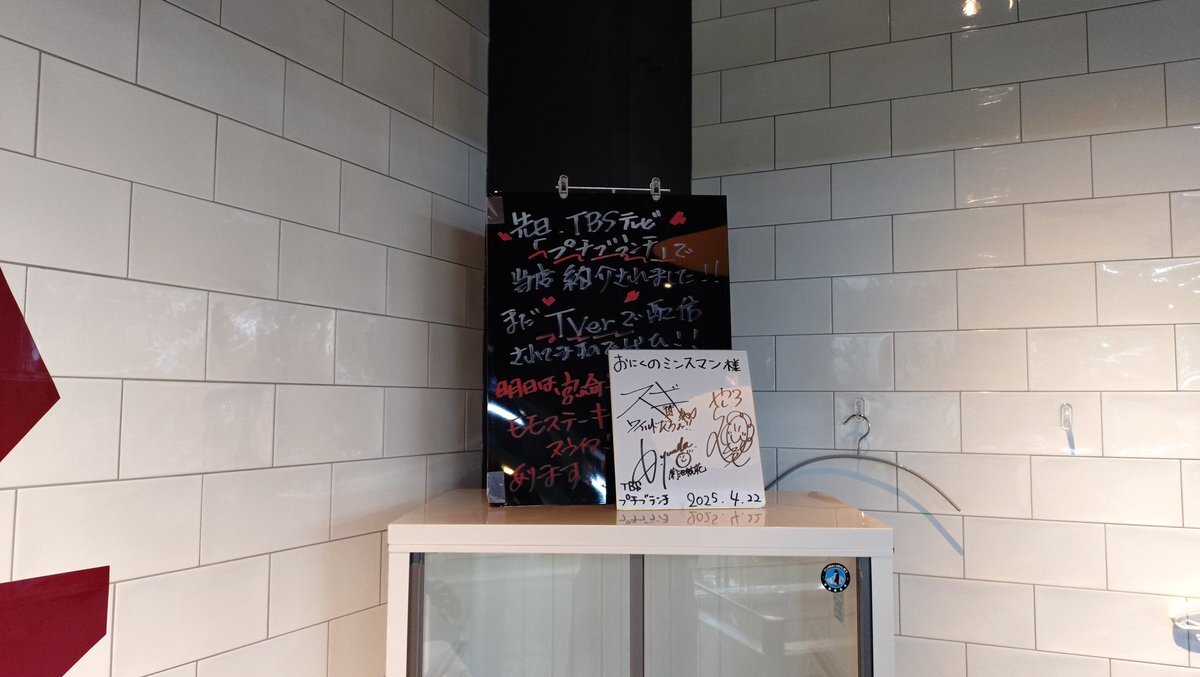 先日、TBSテレビ
「プチブランチ」で
当店紹介されました!!
まだTVerで配信
されてますのでぜひ!!
明日は、宮崎
ももステーキ
あります
おにくのミンスマン様
スギ
ワイルドだろぉ!!
TBS
プチブランチ 2025.4.22